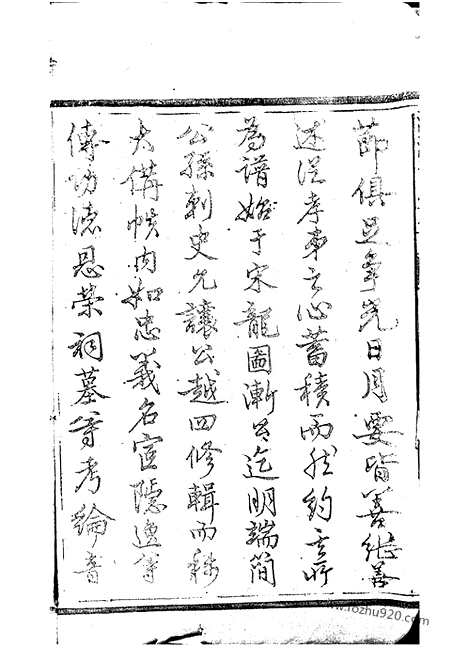 節俱足爭光日月要皆善繼善
述從孝東之心蓄積而然約之所
為譜始于宋龍圖漸公迄明端簡
公孫刺史允讓公越四修輯而稱
大備帙內如忠義名宦隱逸等
傳功德恩榮祠墓等考綸音
www.fozhu920.com